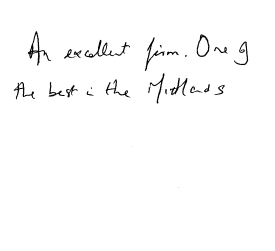 An excellent firm. One of
the best in the Midlands